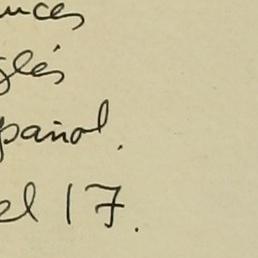 uces
glés
pañol.
el 17.